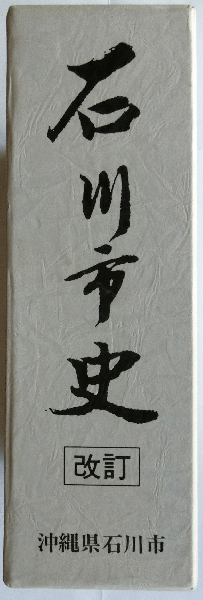 石川市史
改訂
沖縄県石川市